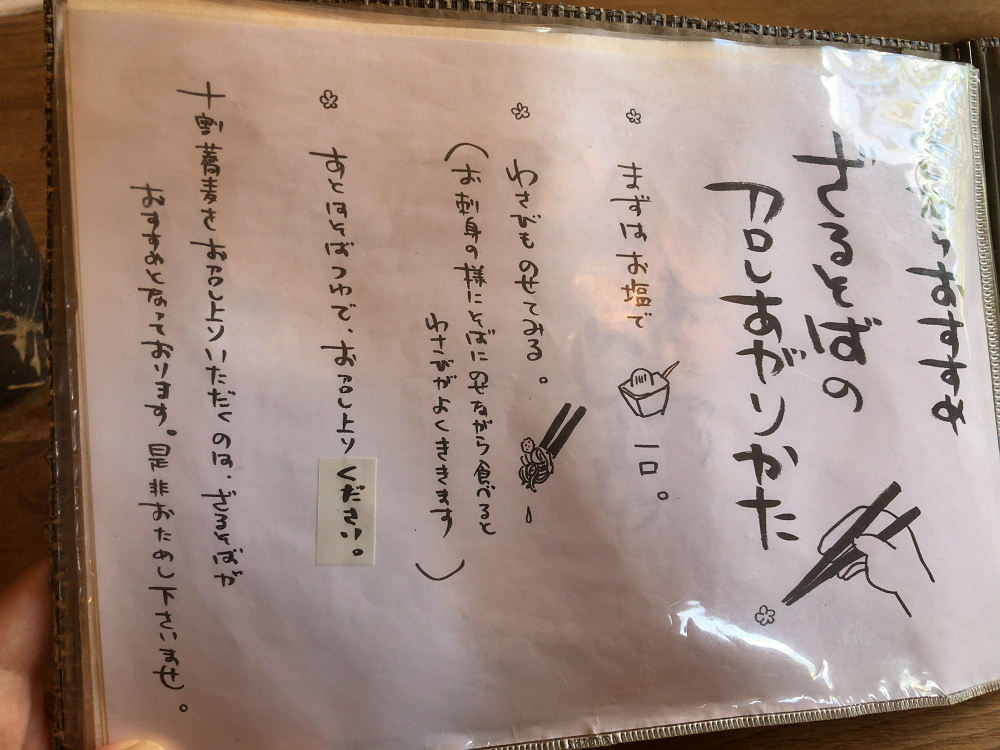 おすすめ
ざるそばの
召しあがりかた
まずはお塩で 一口。
わさびものせてみる。
(お刺身の様にそばにのせながら食べると
わさびがよくききます)
あとはそばつゆで、お召し上り ください。
十割蕎麦をお召し上りいただくのは、ざるそばが
おすすめとなっております。是非おためし下さいませ。